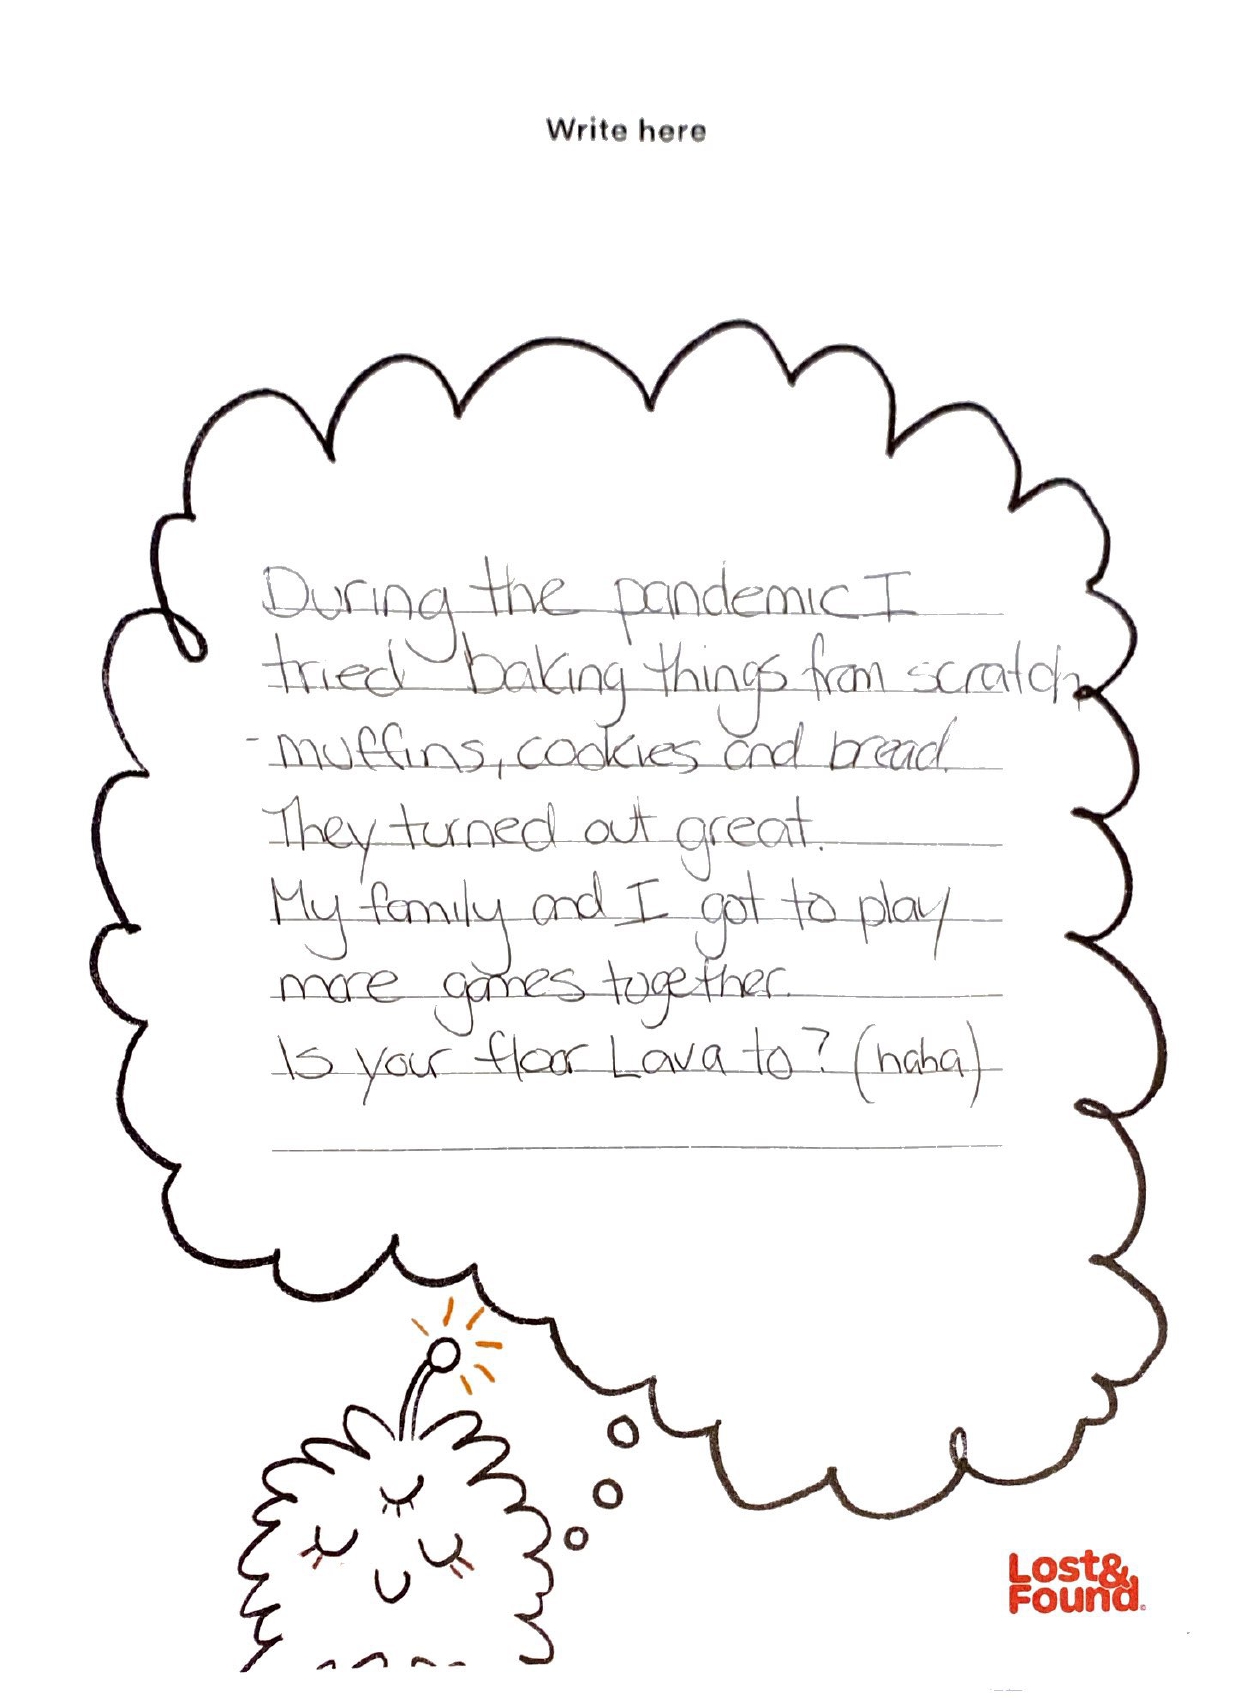 Write here
During the pandemic I
tried baking things from scratch
- muffins, cookies and bread.
They turned out great.
My family and I got to play
more games together.
Is your floor Lava to? (haha)
Lost&
Found.